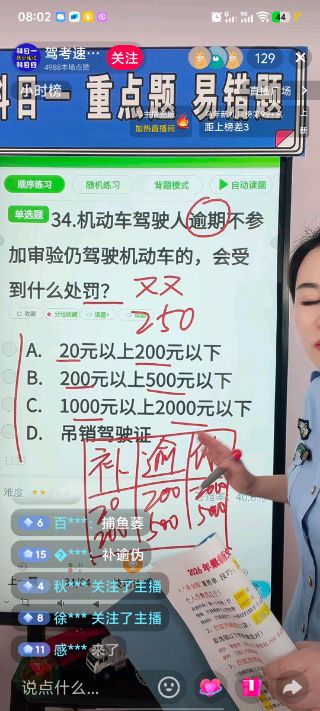 08:02
5G
5G
44
科目一
科目四
驾考速…
4988本场点赞
关注
129
科目一 重点题 易错题
小时榜
加热直播间
距上榜差3
直播广场
顺序练习
随机练习
背题模式
自动读题
单选题
34.机动车驾驶人逾期不参
加审验仍驾驶机动车的，会受
到什么处罚?
收藏
又又
250
A. 20元以上200元以下
B. 200元以上500元以下
C. 1000元以上2000元以下
D. 吊销驾驶证
补 逾
20 200
200 500
难度
6 百***：捕鱼萎
15 ***：补逾伪
4 秋*** 关注了主播
8 徐*** 关注了主播
11 感*** 来了
说点什么...